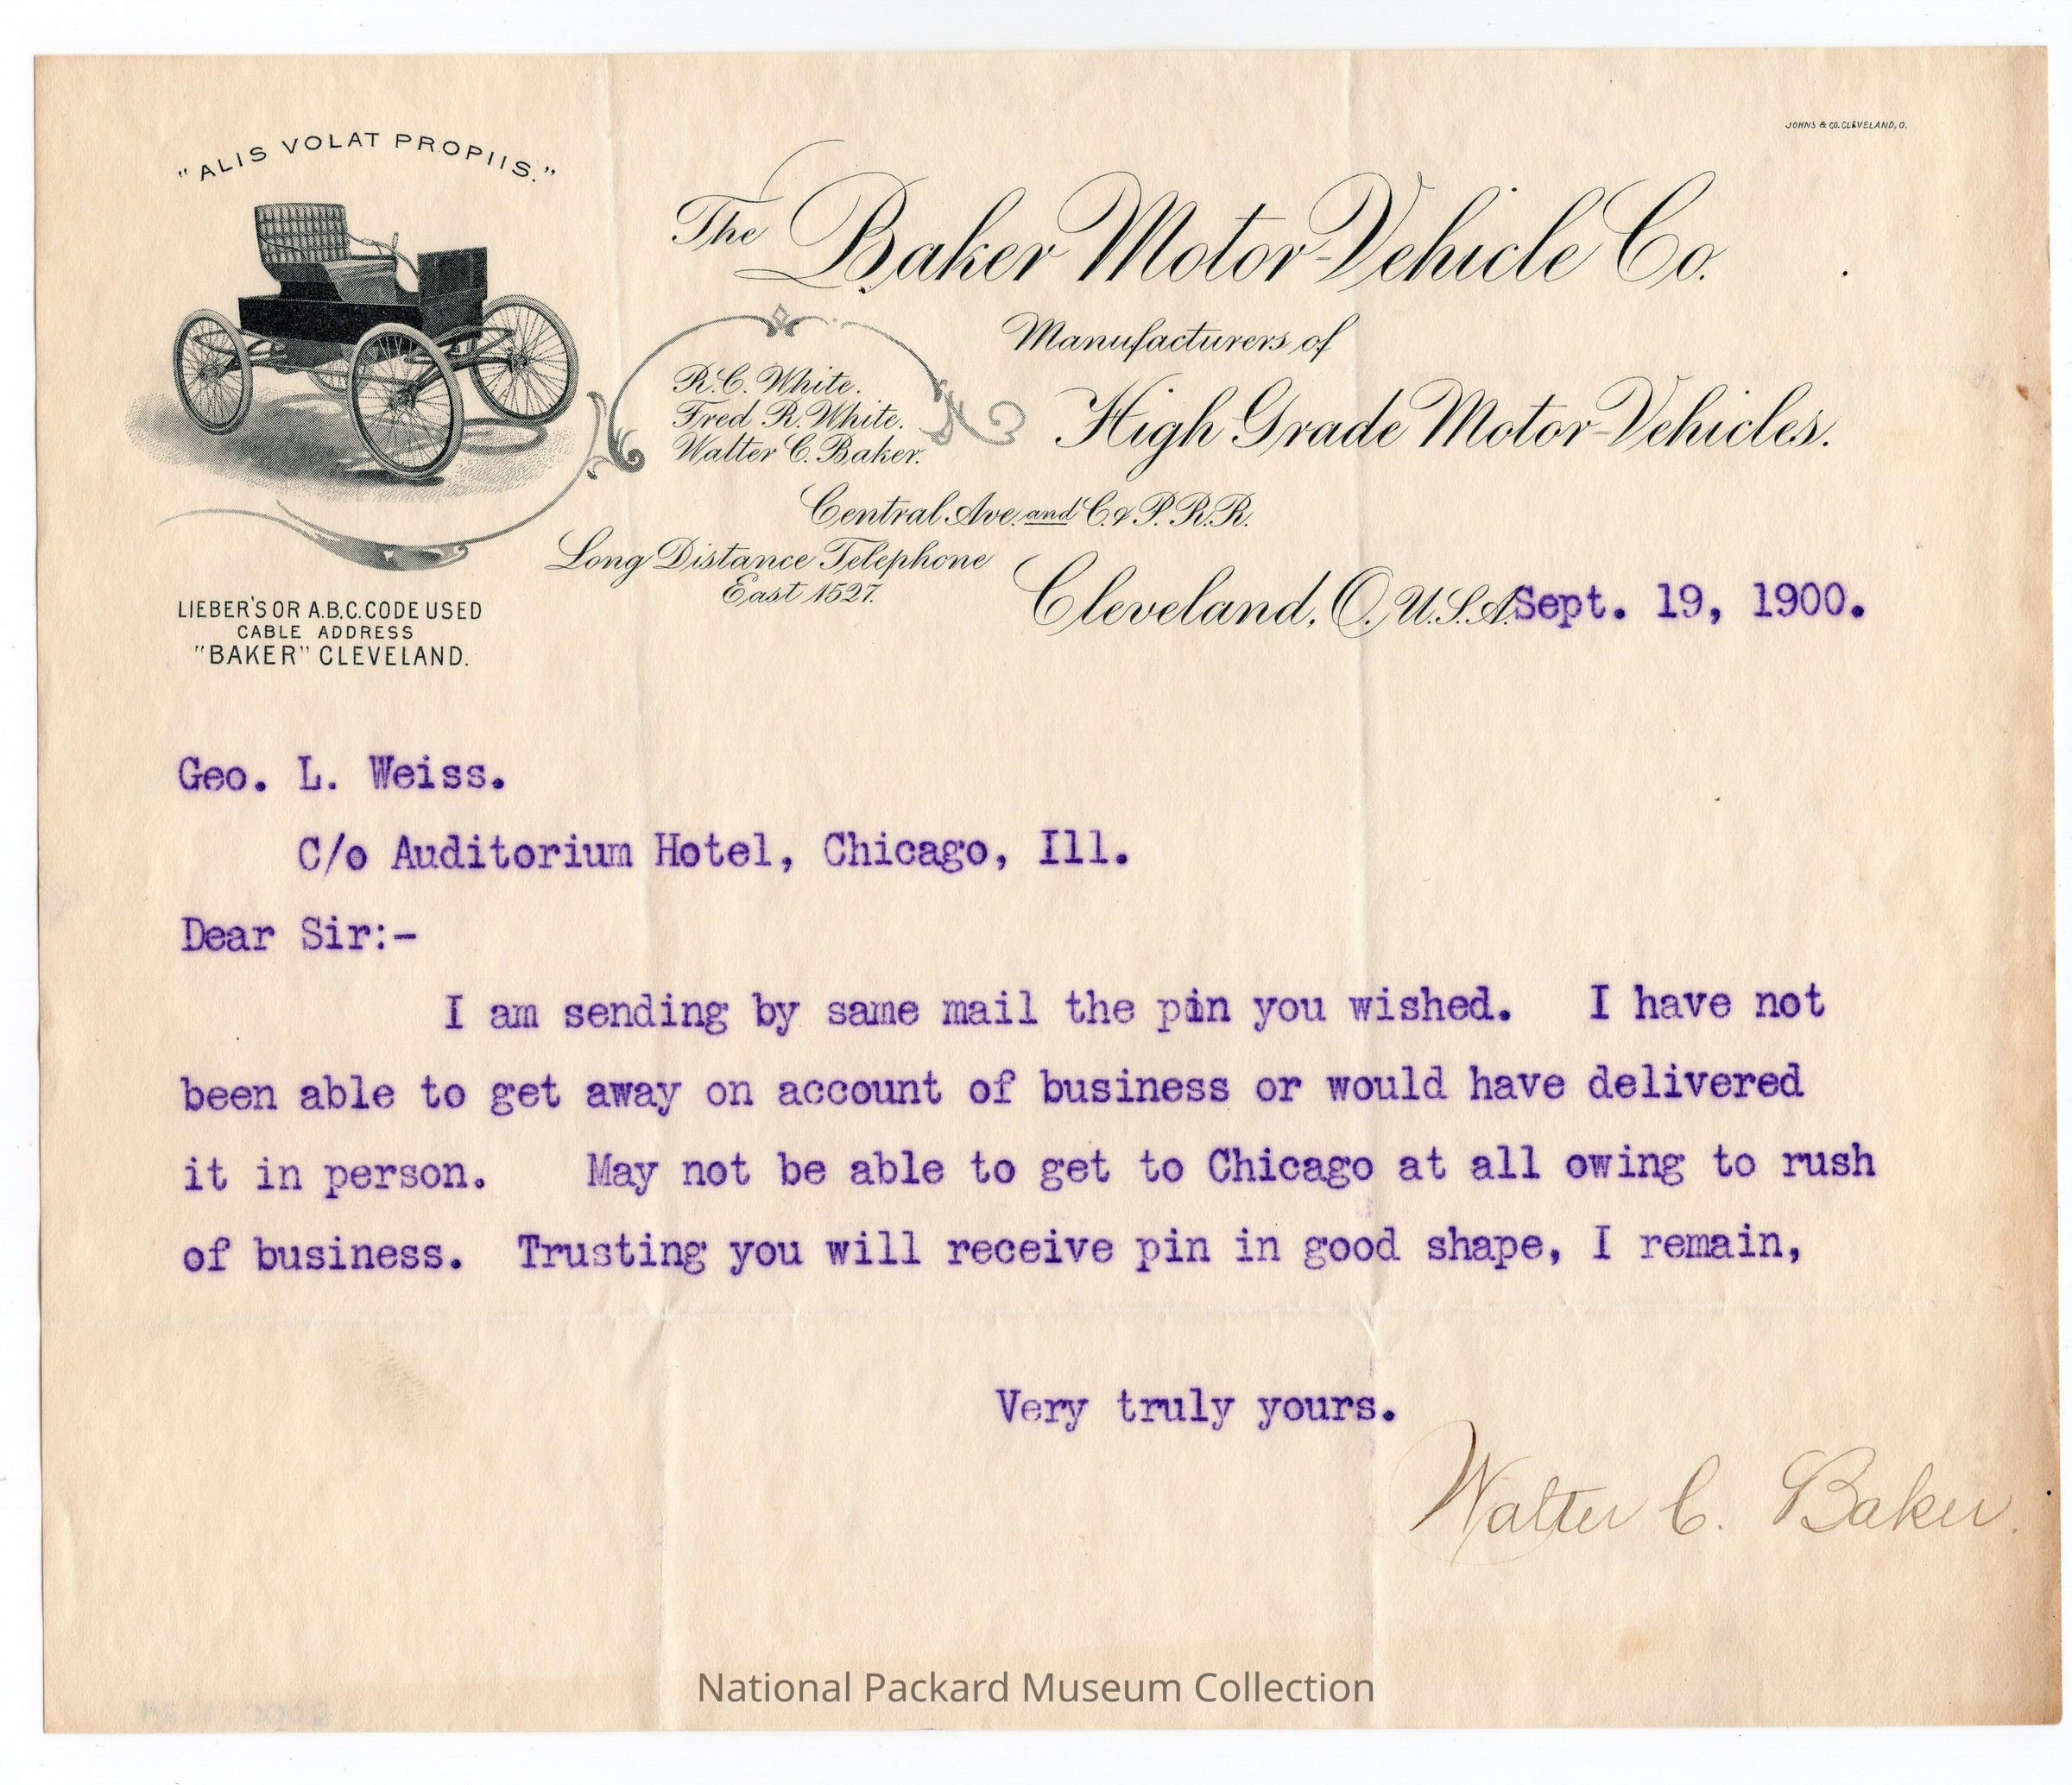 "ALIS VOLAT PROPIIS."
JOHNS & CO. CLEVELAND, O.
The Baker Motor-Vehicle Co.
Manufacturers of
High Grade Motor-Vehicles.
R.C. White.
Fred R. White.
Walter C. Baker.
Central Ave. and C. & P. R.R.
Long Distance Telephone
East 1527.
Cleveland, O. U.S.A. Sept. 19, 1900.
LIEBER'S OR A.B.C. CODE USED
CABLE ADDRESS
"BAKER" CLEVELAND.
Geo. L. Weiss.
C/o Auditorium Hotel, Chicago, Ill.
Dear Sir:-
I am sending by same mail the pin you wished. I have not
been able to get away on account of business or would have delivered
it in person. May not be able to get to Chicago at all owing to rush
of business. Trusting you will receive pin in good shape, I remain,
Very truly yours.
Walter C. Baker.
National Packard Museum Collection